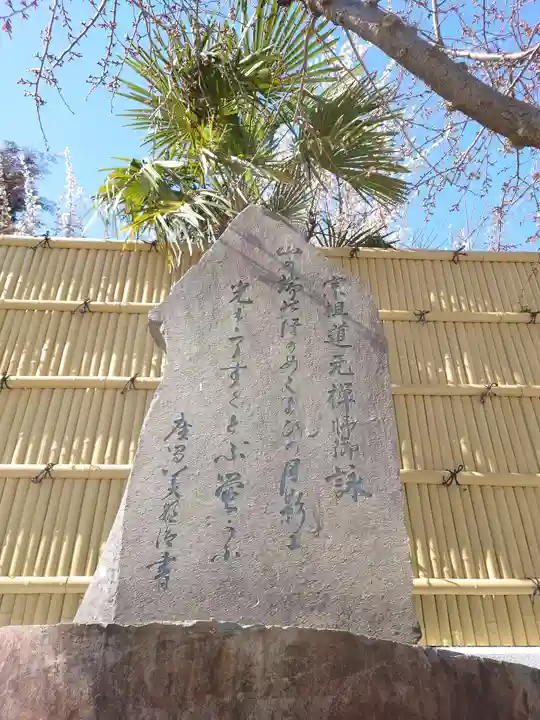 宗祖道元禅師御詠
山の端のほのめくよひの月影に
光もうすくとふ螢かな
書